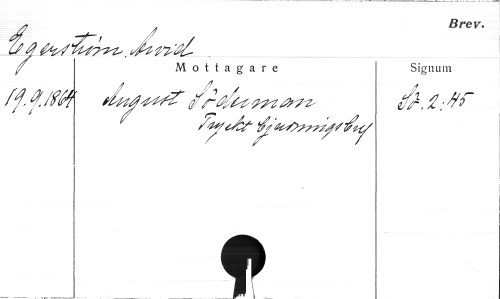 Brev.
Egerström, Arvid
Mottagare Signum
19.9.1864 August Söderman Sö. 2:45
Tryckt bjudningsbref